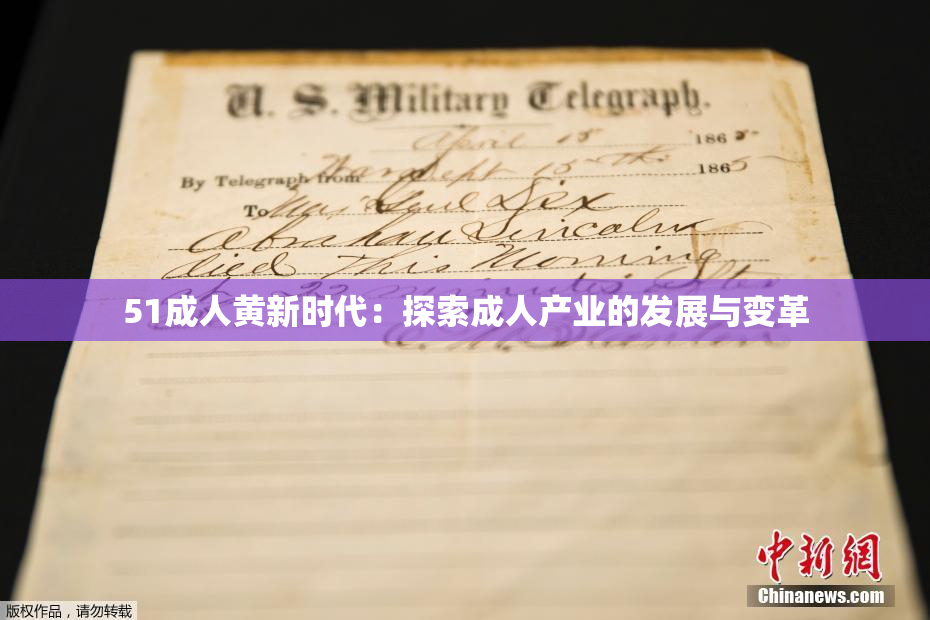 U. S. Military Telegraph.
April 15 1865
By Telegraph from War Dept 15th 1865
To Maj Genl Dix
Abraham Lincoln
died this morning
22 minutes after
51成人黄新时代：探索成人产业的发展与变革
中新网
Chinanews.com
版权作品，请勿转载